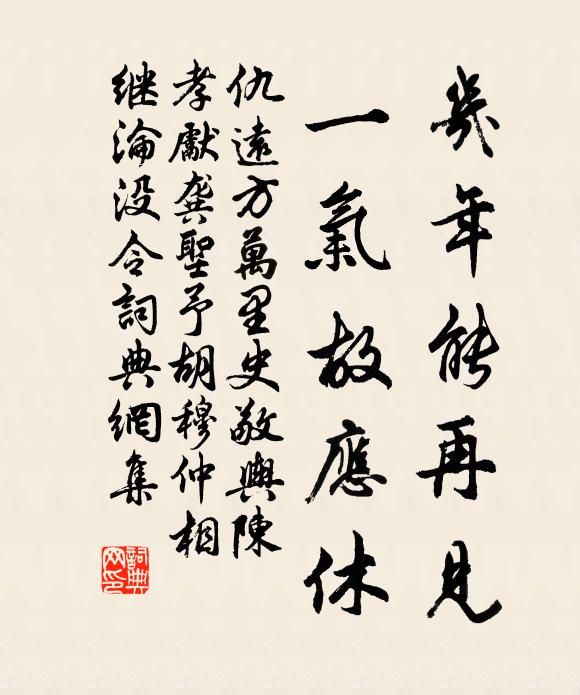 幾年能再見
一氣故應休
仇遠方萬里史敬輿陳
孝獻龔聖予胡穆仲相
继淪没令詞典網集
詞典網印